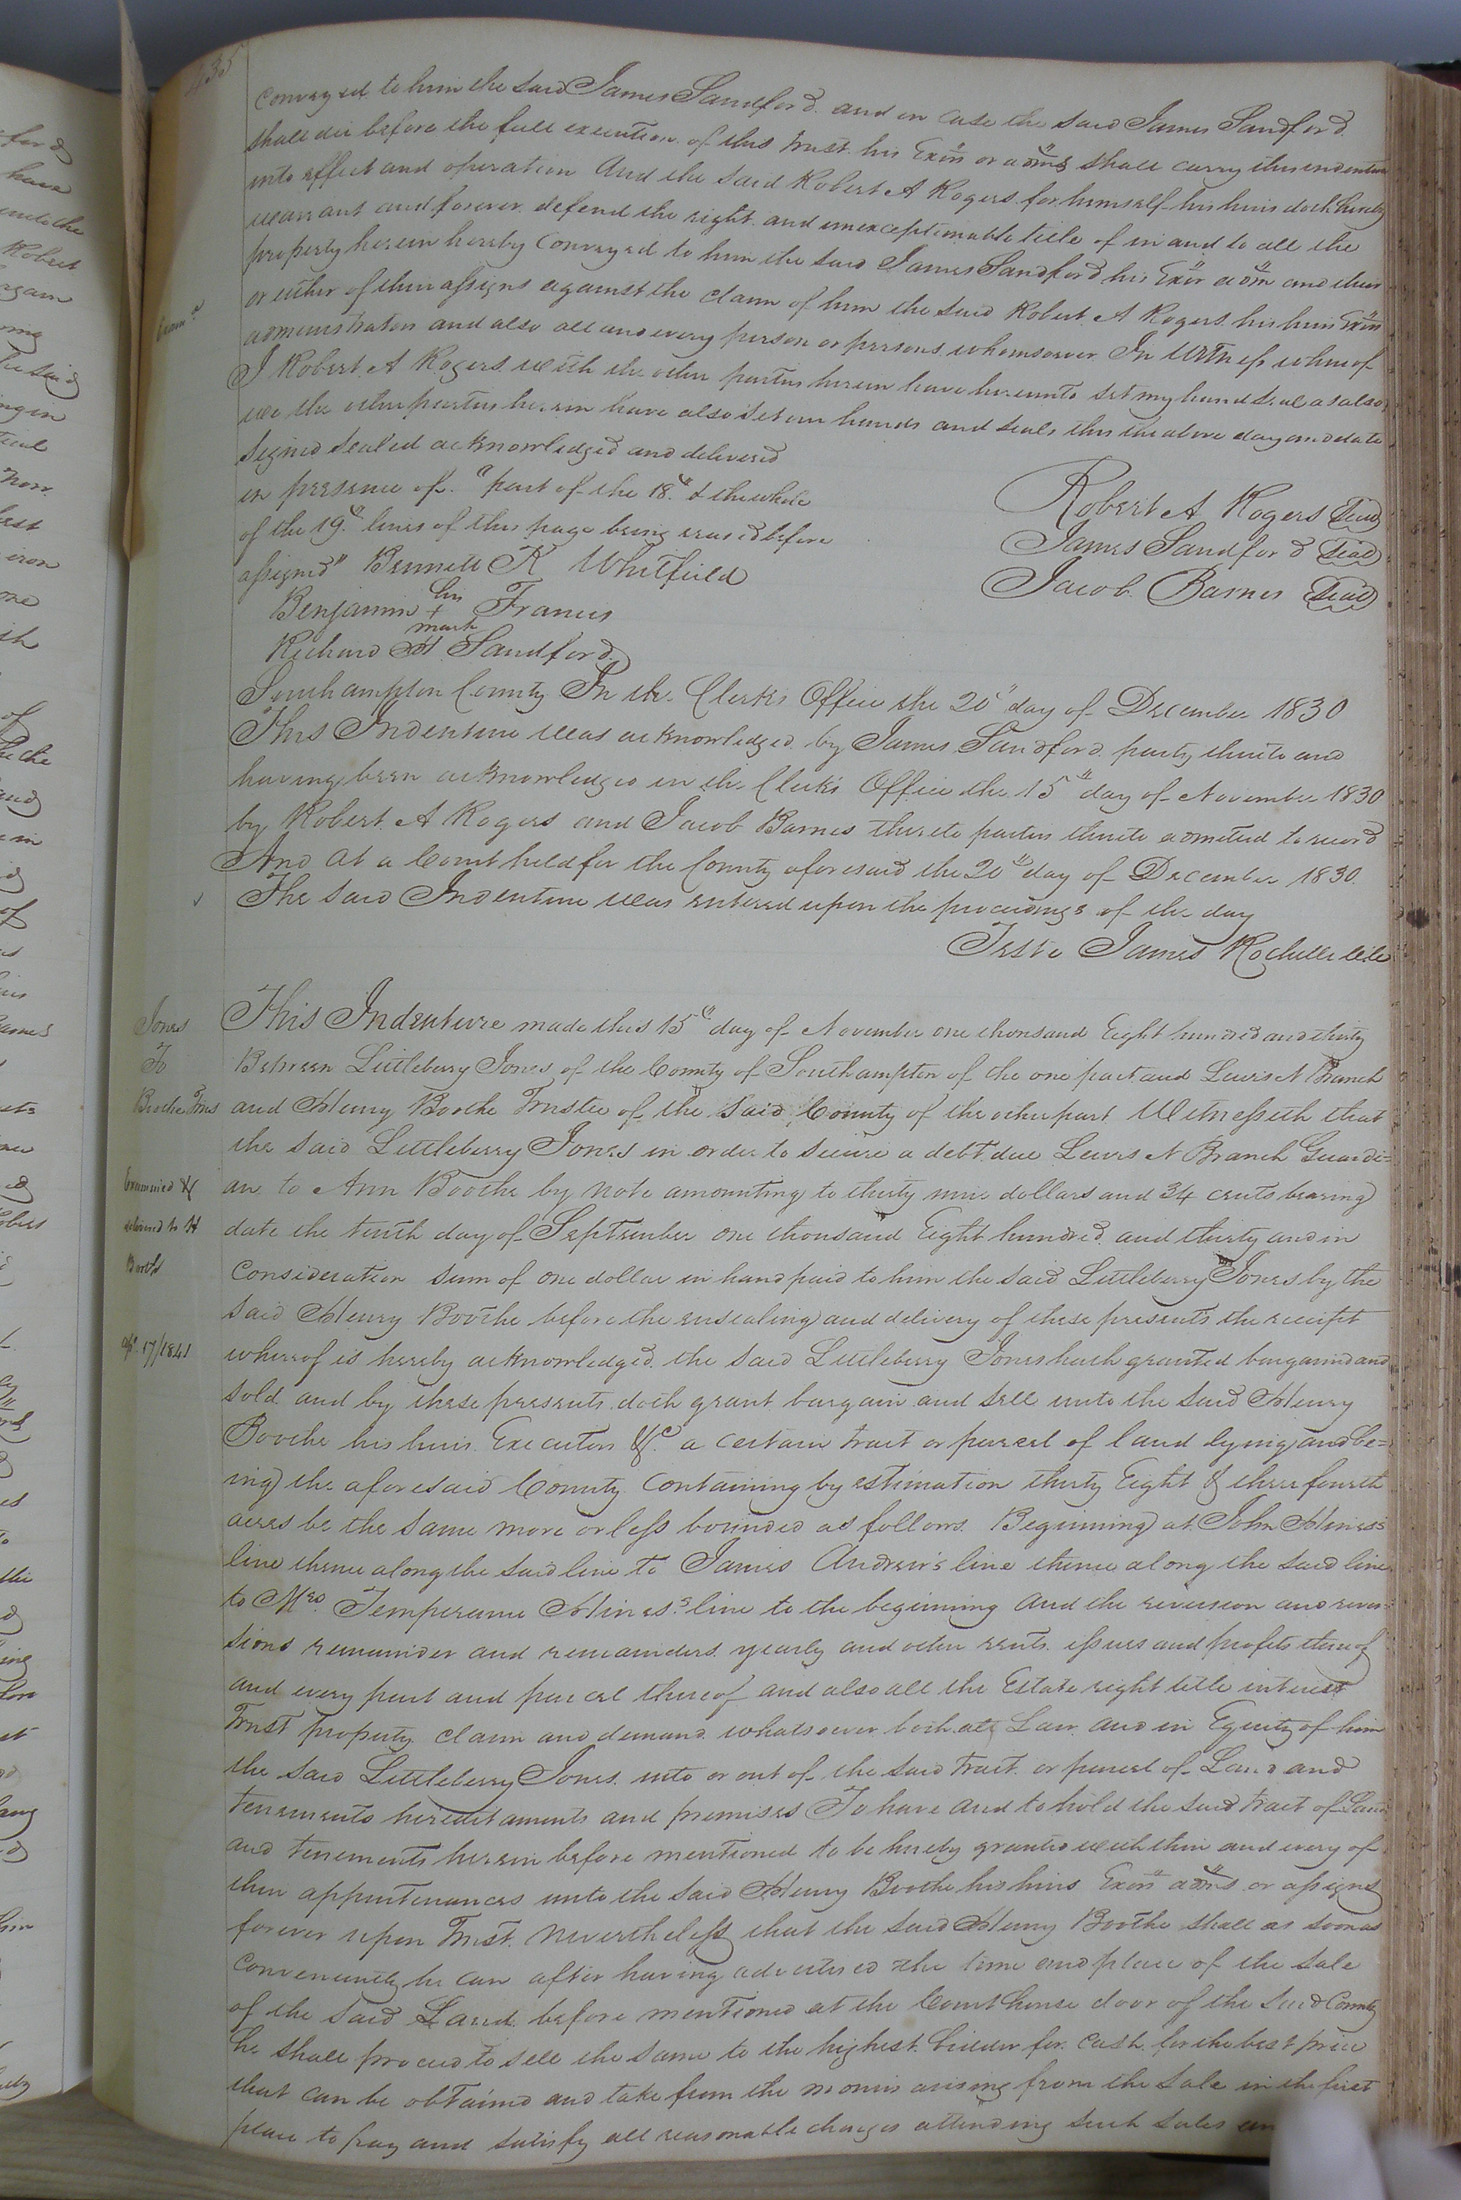 435
conveyed to him the said James Sandford and in case the said James Sandford
shall die before the full execution of this trust his Exors or adms shall carry this indenture
into effect and operation And the said Robert A Rogers for himself his heirs doth hereby
warrant and forever defend the right and unexceptionable title of in and to all the
property herein hereby Conveyed to him the said James Sandford his Exor adm and their
or either of their assigns against the claim of him the said Robert A Rogers his heirs Exors
administrators and also all and every person or persons whomsoever In Witness whereof
I Robert A Rogers with the other parties herein have hereunto set my hand & seal as also
we the other parties herein have also set our hands and seals this the above day and date
Signed sealed acknowledged and delivered
in presence of "part of the 18th & the whole
of the 19th lines of this page being erased before
assigned" Bennett K Whitfield
Benjamin his + mark Francis
Richard H Sandford
Robert A Rogers Seal
James Sandford Seal
Jacob Barnes Seal
Southampton County In the Clerks Office the 20th day of December 1830
This Indenture was acknowledged by James Sandford party thereto and
having been acknowledged in the Clerk's Office the 15th day of November 1830
by Robert A Rogers and Jacob Barnes thereto parties thereto admitted to record
And at a Court held for the County aforesaid the 20th day of December 1830
The said Indenture was entered upon the proceedings of the day
Teste James Rochelle
Jones
To
Boothe Trus
Examined &
delivered to H
Booth
17/1841
This Indenture made this 15th day of November one thousand Eight hundred and thirty
Between Littleberry Jones of the County of Southampton of the one part and Lewis N Branch
and Henry Boothe Trustee of the said County of the other part Witnesseth that
the said Littleberry Jones in order to secure a debt due Lewis N Branch Guardi=
an to Ann Boothe by note amounting to thirty nine dollars and 34 cents bearing
date the tenth day of September one thousand Eight hundred and thirty and in
Consideration sum of one dollar in hand paid to him the said Littleberry Jones by the
said Henry Boothe before the ensealing and delivery of these presents the receipt
whereof is hereby acknowledged the said Littleberry Jones hath granted bargained and
sold and by these presents doth grant bargain and sell unto the said Henry
Boothe his heirs Executors &c a certain tract or parcel of land lying and be=
ing the aforesaid County Containing by estimation thirty Eight & three fourth
acres be the same more or less bounded as follows Beginning at John Hines's
line thence along the said line to James Andrew's line thence along the said line
to Mrs Temperance Hines's line to the beginning And the reversion and rever=
sions remainder and remainders yearly and other rents issues and profits thereof
and every part and parcel thereof and also all the Estate right title interest
Trust property claim and demand whatsoever both at Law and in Equity of him
the said Littleberry Jones into or out of the said tract or parcel of Land and
tenements hereditaments and premises To have and to hold the said tract of Land
and tenements herein before mentioned to be hereby granted with their and every of
their appurtenances unto the said Henry Boothe his heirs Exors adms or assigns
forever upon Trust Nevertheless that the said Henry Boothe shall as soon as
conveniently he can after having advertised the time and place of the sale
of the said Land before mentioned at the Court house door of the said County
he shall proceed to sell the same to the highest bidder for cash for the best price
that can be obtained and take from the monies arising from the sale in the first
place to pay and satisfy all reasonable charges attending such sales